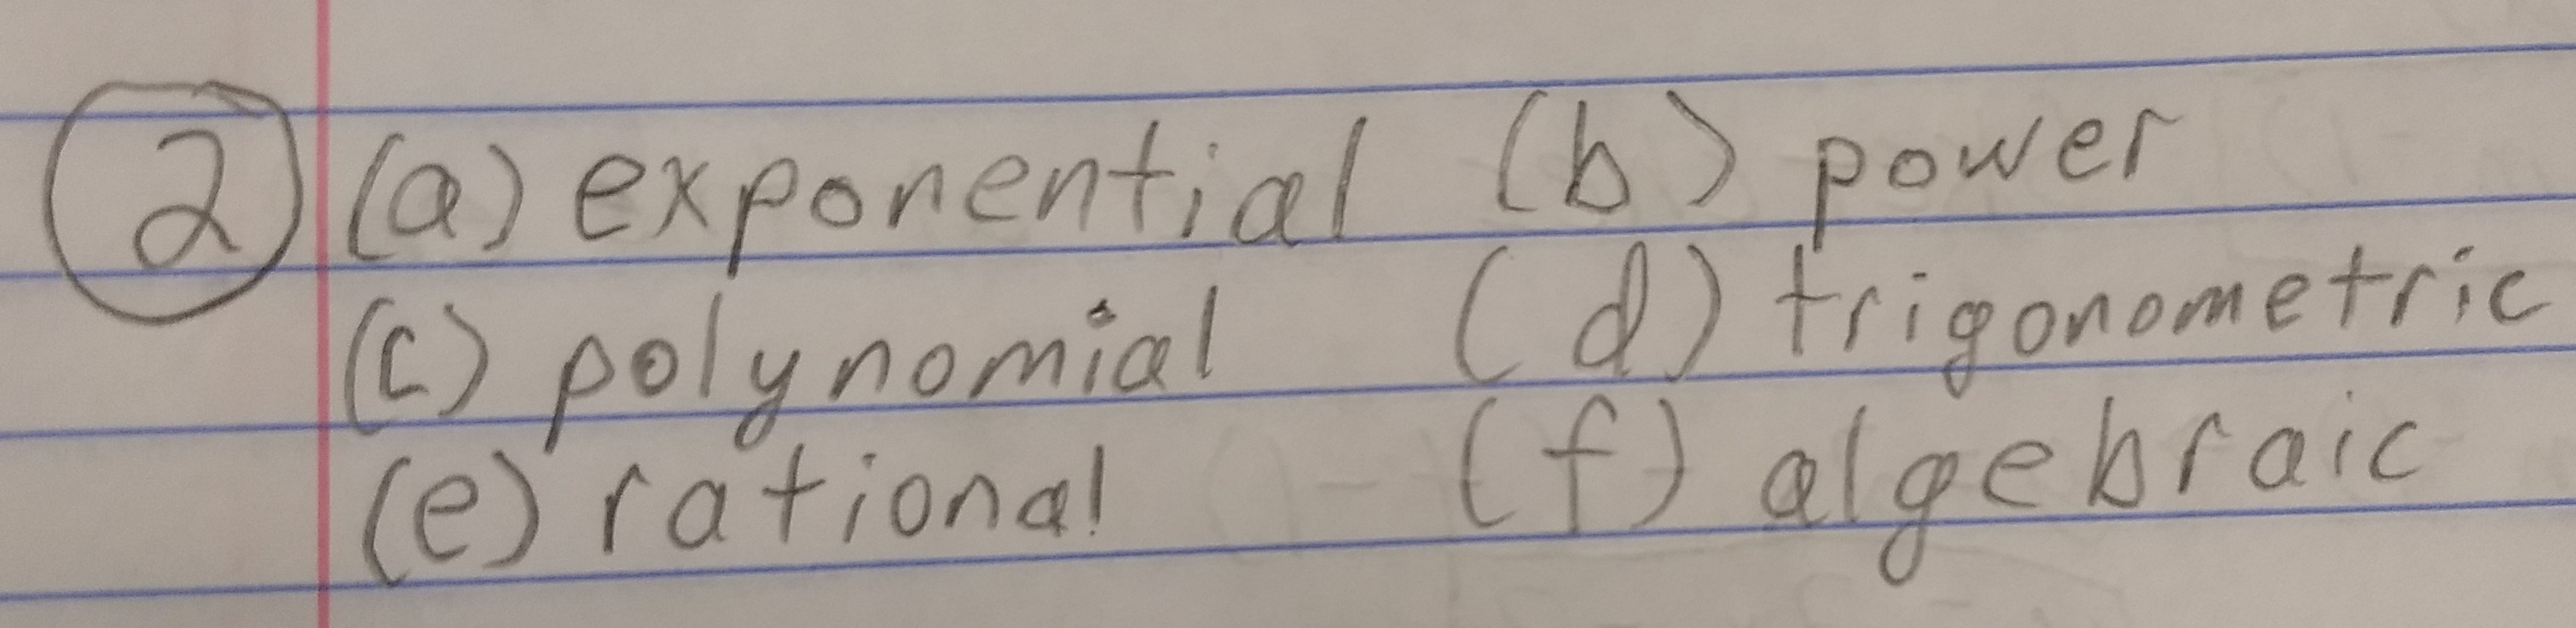 2 (a) exponential (b) power
(c) polynomial (d) trigonometric
(e) rational (f) algebraic